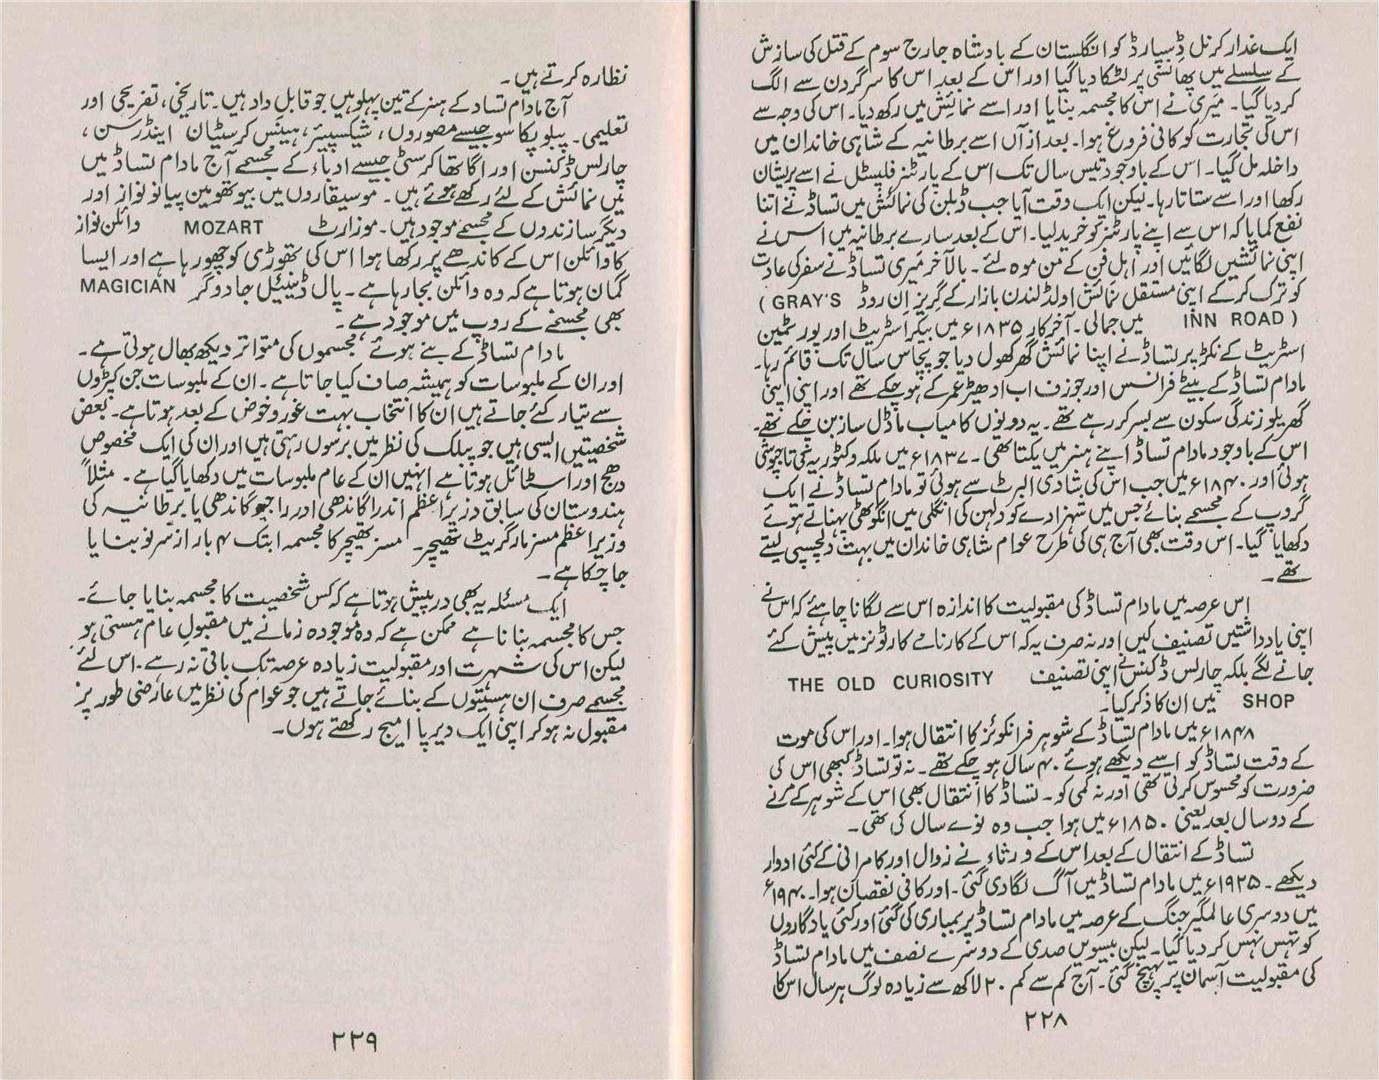 ایک غدار کرنل ڈِسپارڈ کو انگلستان کے بادشاہ جارج سوم کے قتل کی سازش
کے سلسلے میں پھانسی پر لٹکا دیا گیا اور اس کے بعد اس کا سر گردن سے الگ
کر دیا گیا۔ میری نے اس کا مجسمہ بنایا اور اسے نمائش میں رکھ دیا۔ اس کی وجہ سے
اس کی تجارت کو کافی فروغ ہوا۔ بعد از آں اسے برطانیہ کے شاہی خاندان میں
داخلہ مل گیا۔ اس کے باوجود تیس سال تک اس کے پارٹنر فلپسٹل نے اسے پریشان
رکھا اور اسے ستاتا رہا۔ لیکن ایک وقت آیا جب ڈبلن کی نمائش میں تساڈ نے اتنا
نفع کمایا کہ اس سے اپنے پارٹنر کو خرید لیا۔ اس کے بعد سارے برطانیہ میں اس نے
اپنی نمائشیں لگائیں اور اہلِ فن کے من موہ لئے۔ بالآخر میری تساڈ نے سفر کی عادت
کو ترک کر کے اپنی مستقل نمائش اولڈ لندن بازار کے گریز اِن روڈ (GRAY'S
INN ROAD) میں جمالی۔ آخر کار ۱۸۳۵ء میں بیکر اسٹریٹ اور پورٹمین
اسٹریٹ کے نکڑ پر تساڈ نے اپنا نمائش گھر کھول دیا جو پچاس سال تک قائم رہا۔
مادام تساڈ کے بیٹے فرانسس اور جوزف اب ادھیڑ عمر کے ہو چکے تھے اور اپنی اپنی
گھریلو زندگی سکون سے بسر کر رہے تھے۔ یہ دونوں کامیاب ماڈل ساز بن چکے تھے۔
اس کے باوجود مادام تساڈ اپنے ہنر میں یکتا تھی۔ ۱۸۳۷ء میں ملکہ وکٹوریہ کی تاجپوشی
ہوئی اور ۱۸۴۰ء میں جب اس کی شادی البرٹ سے ہوئی تو مادام تساڈ نے ایک
گروپ کے مجسمے بنائے جس میں شہزادے کو دلہن کی انگلی میں انگوٹھی پہناتے ہوئے
دکھایا گیا۔ اس وقت بھی آج ہی کی طرح عوام شاہی خاندان میں بہت دلچسپی لیتے
تھے۔
اس عرصہ میں مادام تساڈ کی مقبولیت کا اندازہ اس سے لگانا چاہئے کہ اس نے
اپنی یادداشتیں تصنیف کیں اور نہ صرف یہ کہ اس کے کارنامے کارٹونز میں پیش کئے
جانے لگے بلکہ چارلس ڈکنس نے اپنی تصنیف THE OLD CURIOSITY
SHOP میں ان کا ذکر کیا۔
۱۸۴۸ء میں مادام تساڈ کے شوہر فرانکوئز کا انتقال ہوا۔ اور اس کی موت
کے وقت تساڈ کو اسے دیکھے ہوئے ۴۰ سال ہو چکے تھے۔ نہ تو تساڈ کبھی اس کی
ضرورت کو محسوس کرتی تھی اور نہ کمی کو۔ تساڈ کا انتقال بھی اس کے شوہر کے مرنے
کے دو سال بعد یعنی ۱۸۵۰ء میں ہوا جب وہ نوے سال کی تھی۔
تساڈ کے انتقال کے بعد اس کے ورثاء نے زوال اور کامرانی کے کئی ادوار
دیکھے۔ ۱۹۲۵ء میں مادام تساڈ میں آگ لگا دی گئی۔ اور کافی نقصان ہوا۔ ۱۹۴۰ء
میں دوسری عالمگیر جنگ کے عرصہ میں مادام تساڈ پر بمباری کی گئی اور کئی یادگاروں
کو تہس نہس کر دیا گیا۔ لیکن بیسویں صدی کے دوسرے نصف میں مادام تساڈ
کی مقبولیت آسمان پر پہنچ گئی۔ آج کم سے کم ۲۰ لاکھ سے زیادہ لوگ ہر سال اس کا
۲۲۸
نظارہ کرتے ہیں۔
آج مادام تساد کے ہنر کے تین پہلو ہیں جو قابلِ داد ہیں۔ تاریخی، تفریحی اور
تعلیمی۔ پبلو پکاسو جیسے مصوروں، شیکسپئیر، ہینس کرسٹیان اینڈرسن،
چارلس ڈکنسن اور اگاتھا کرسٹی جیسے ادباء کے مجسمے آج مادام تساڈ میں
میں نمائش کے لئے رکھے ہوئے ہیں۔ موسیقاروں میں بیوتھومین پیانو نواز اور
دیگر سازندوں کے مجسمے موجود ہیں۔ موزارٹ MOZART وائلن نواز
کا وائلن اس کے کاندھے پر رکھا ہوا اس کی ٹھوڑی کو چھو رہا ہے اور ایسا
گمان ہوتا ہے کہ وہ وائلن بجا رہا ہے۔ پال ڈینئیل جادوگر MAGICIAN
بھی مجسمے کے روپ میں موجود ہے۔
مادام تساڈ کے بنے ہوئے مجسموں کی متواتر دیکھ بھال ہوتی ہے۔
اور ان کے ملبوسات کو ہمیشہ صاف کیا جاتا ہے۔ ان کے ملبوسات جن کپڑوں
سے تیار کئے جاتے ہیں ان کا انتخاب بہت غور و خوض کے بعد ہوتا ہے۔ بعض
شخصیتیں ایسی ہیں جو پبلک کی نظر میں برسوں رہتی ہیں اور ان کی ایک مخصوص
دھج اور اسٹائل ہوتا ہے انہیں ان کے عام ملبوسات میں دکھایا گیا ہے۔ مثلاً
ہندوستان کی سابق وزیراعظم اندرا گاندھی اور راجیو گاندھی یا برطانیہ کی
وزیراعظم مسز مارگریٹ تھیچر۔ مسز تھیچر کا مجسمہ ابتک ۴ بار از سرِ نو بنایا
جا چکا ہے۔
ایک مسئلہ یہ بھی درپیش ہوتا ہے کہ کس شخصیت کا مجسمہ بنایا جائے۔
جس کا مجسمہ بنانا ہے ممکن ہے کہ وہ موجودہ زمانے میں مقبولِ عام ہستی ہو
لیکن اس کی شہرت اور مقبولیت زیادہ عرصہ تک باقی نہ رہے۔ اس لئے
مجسمے صرف ان ہستیوں کے بنائے جاتے ہیں جو عوام کی نظر میں عارضی طور پر
مقبول نہ ہو کر اپنی ایک دیرپا امیج رکھتے ہوں۔
۲۲۹